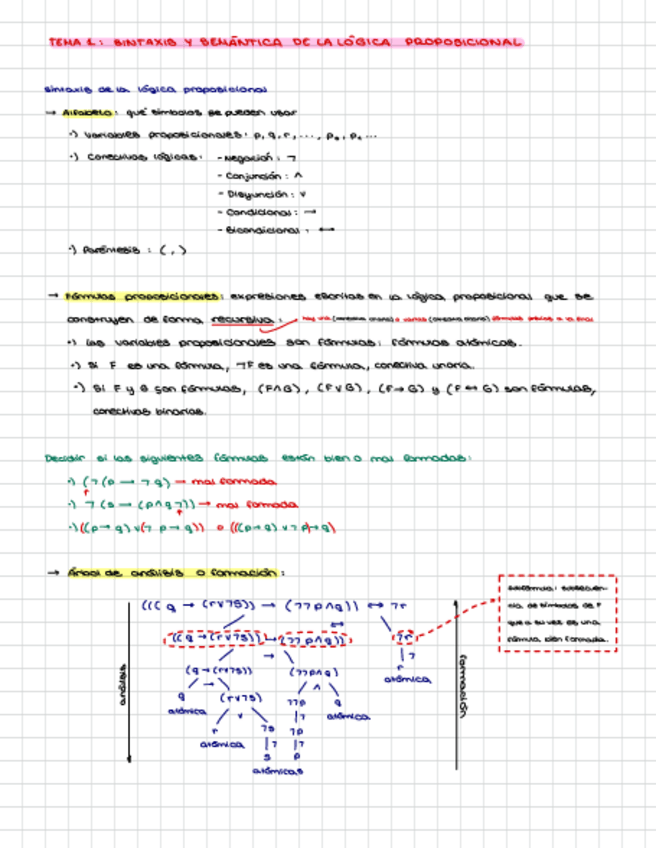 TEMA 1: SINTAXIS Y SEMÁNTICA DE LA LÓGICA PROPOSICIONAL
Sintaxis de la lógica proposicional
→ Alfabeto: qué símbolos se pueden usar
·) Variables proposicionales: p, q, r, ..., p₀, p₁ ...
·) Conectivas lógicas: - Negación: ¬
- Conjunción: ∧
- Disyunción: ∨
- Condicional: →
- Bicondicional: ↔
·) Paréntesis: ( , )
→ Fórmulas proposicionales: expresiones escritas en la lógica proposicional que se
construyen de forma recursiva:
·) Las variables proposicionales son fórmulas: fórmulas atómicas.
·) Si F es una fórmula, ¬F es una fórmula, conectiva unaria.
·) Si F y G son fórmulas, (F∧G), (F∨G), (F→G) y (F↔G) son fórmulas,
conectivas binarias.
Decidir si las siguientes fórmulas están bien o mal formadas:
·) (¬(p → ¬q) → mal formada
·) ¬(s → (p∧q¬)) → mal formada
·) ((p→q) ∨(¬ p→q)) o (((p→q) ∨¬p)→q)
→ Árbol de análisis o formación:
(((q → (r∨¬s)) → (¬¬p∧q)) ↔ ¬r
subfórmula: subsecuen-
cia de símbolos de F
que a su vez es una
fórmula bien formada.
↔
((q→(r∨¬s)) → (¬¬p∧q)) ¬r
→ ¬
(q→(r∨¬s)) (¬¬p∧q) r
atómica
→ ∧
q (r∨¬s) ¬¬p q
atómica ∨ ¬ atómica
r ¬s ¬p
atómica ¬ ¬
s p
atómicas
análisis
formación